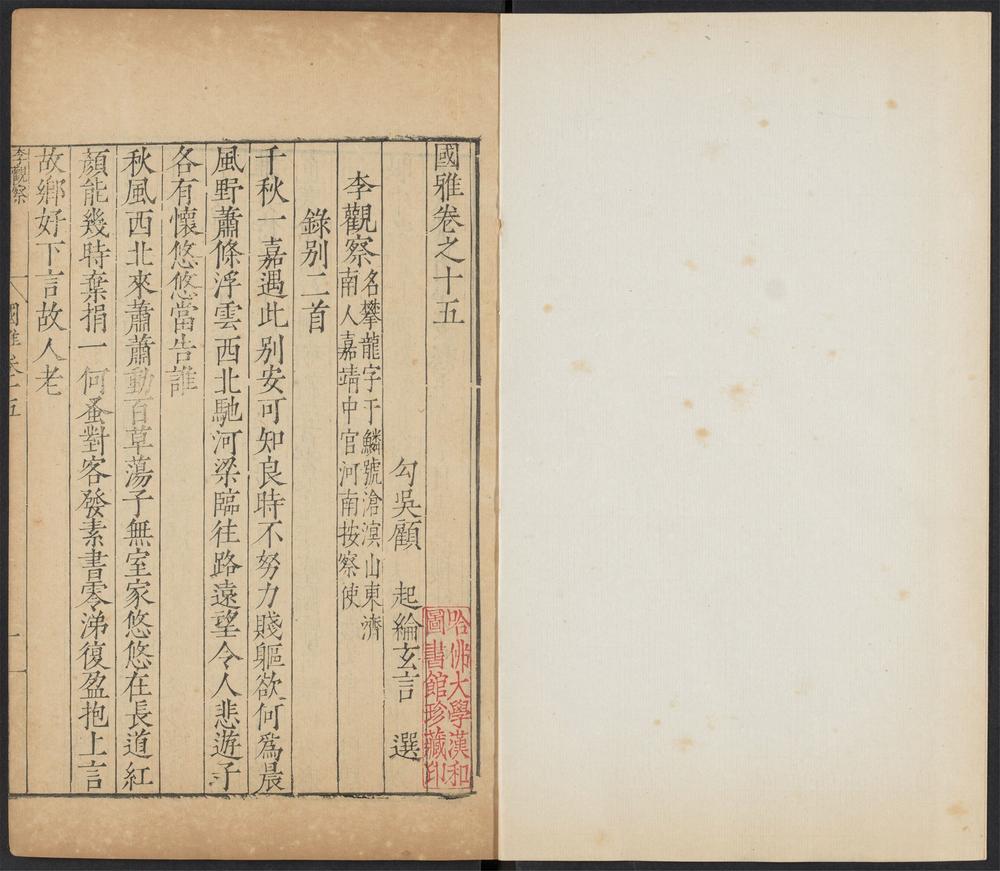 國雅卷之十五
勾吳顧 起綸玄言 選
哈佛大學漢和
圖書館珍藏印
李觀察
名攀龍字于鱗號滄溟山東濟
南人嘉靖中官河南按察使
錄別二首
千秋一嘉遇此別安可知良時不努力賤軀欲何為晨
風野蕭條浮雲西北馳河梁臨往路遠望令人悲遊子
各有懷悠悠當告誰
秋風西北來蕭蕭動百草蕩子無室家悠悠在長道紅
顏能幾時棄捐一何蚤對客發素書零涕復盈抱上言
故鄉好下言故人老
李觀察
國雅卷十五
一